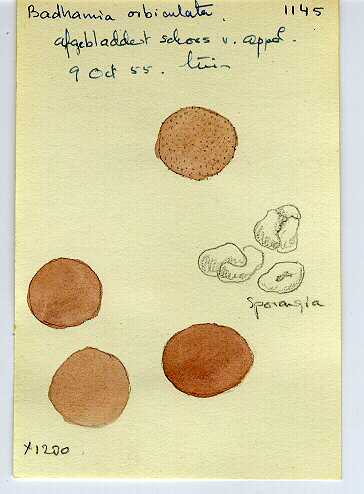 Badhamia orbiculata. 1145
afgebladdert schors v. appel.
9 Oct 55. tuin
Sporangia
x1200